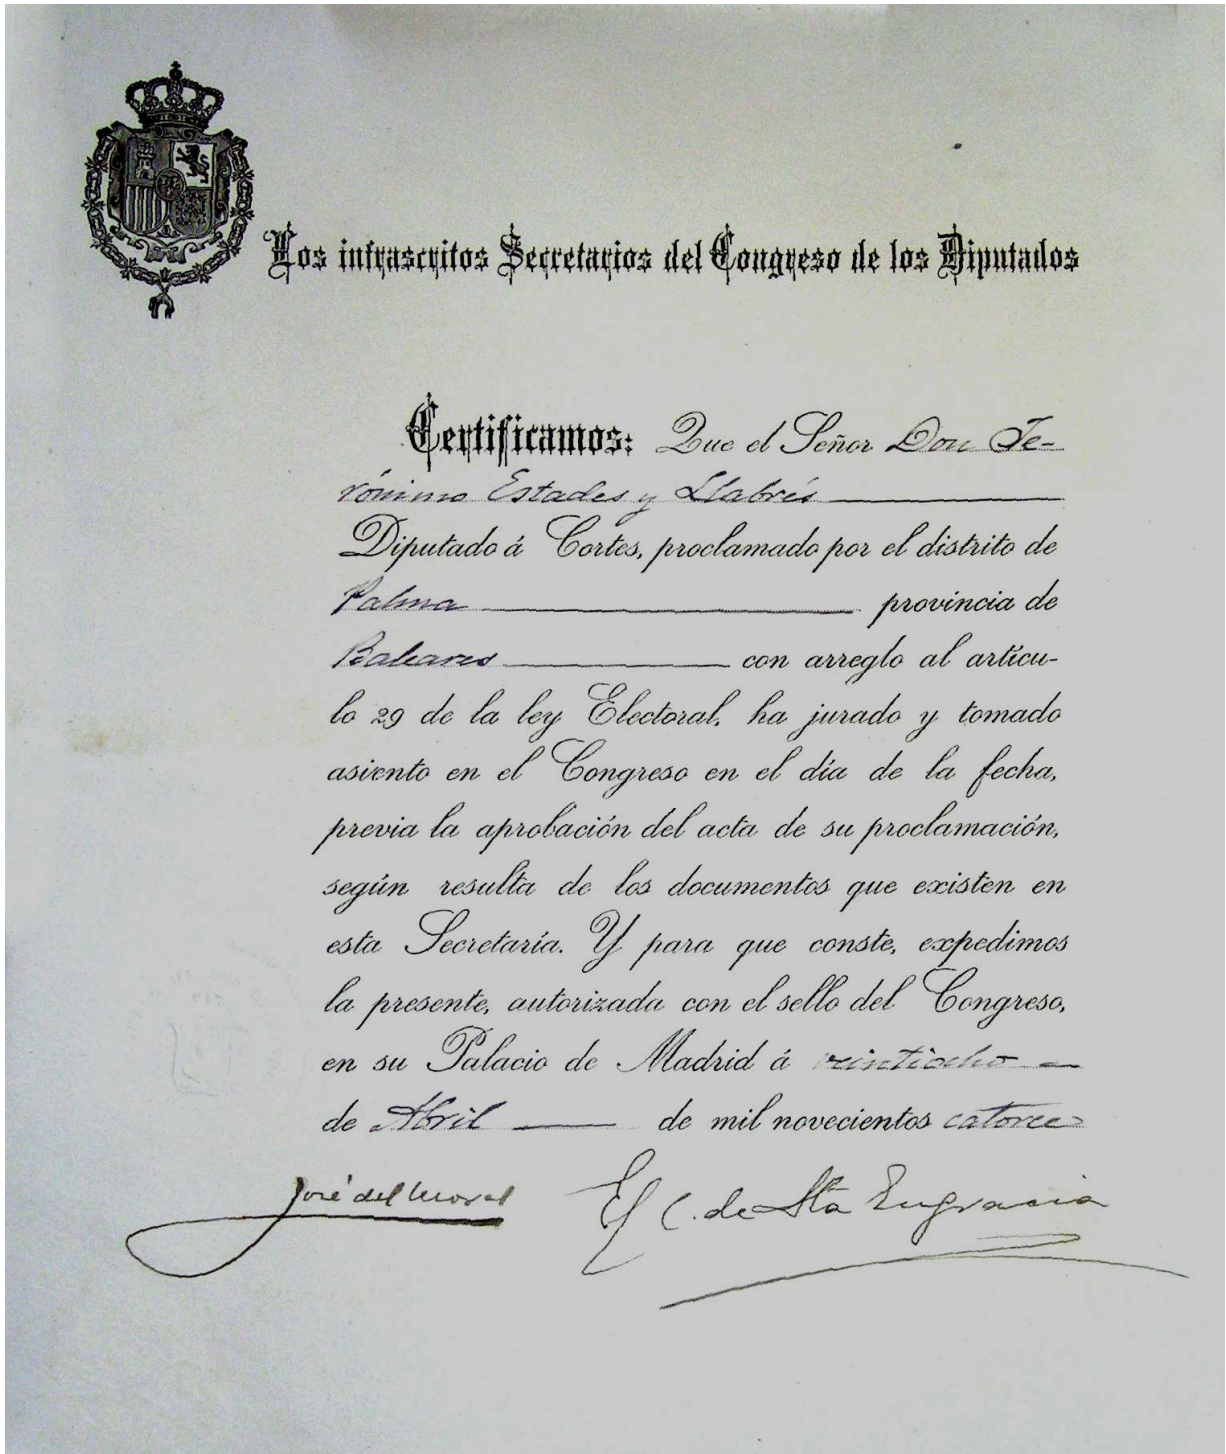 Los infrascritos Secretarios del Congreso de los Diputados
Certificamos: Que el Señor Don Je-
rónimo Estades y Llabrés
Diputado á Cortes, proclamado por el distrito de
Palma provincia de
Baleares con arreglo al artícu-
lo 29 de la ley Electoral, ha jurado y tomado
asiento en el Congreso en el día de la fecha,
previa la aprobación del acta de su proclamación,
según resulta de los documentos que existen en
esta Secretaría. Y para que conste, expedimos
la presente, autorizada con el sello del Congreso,
en su Palacio de Madrid á veintiocho
de Abril de mil novecientos catorce
José del Moral El C. de Sta Engracia